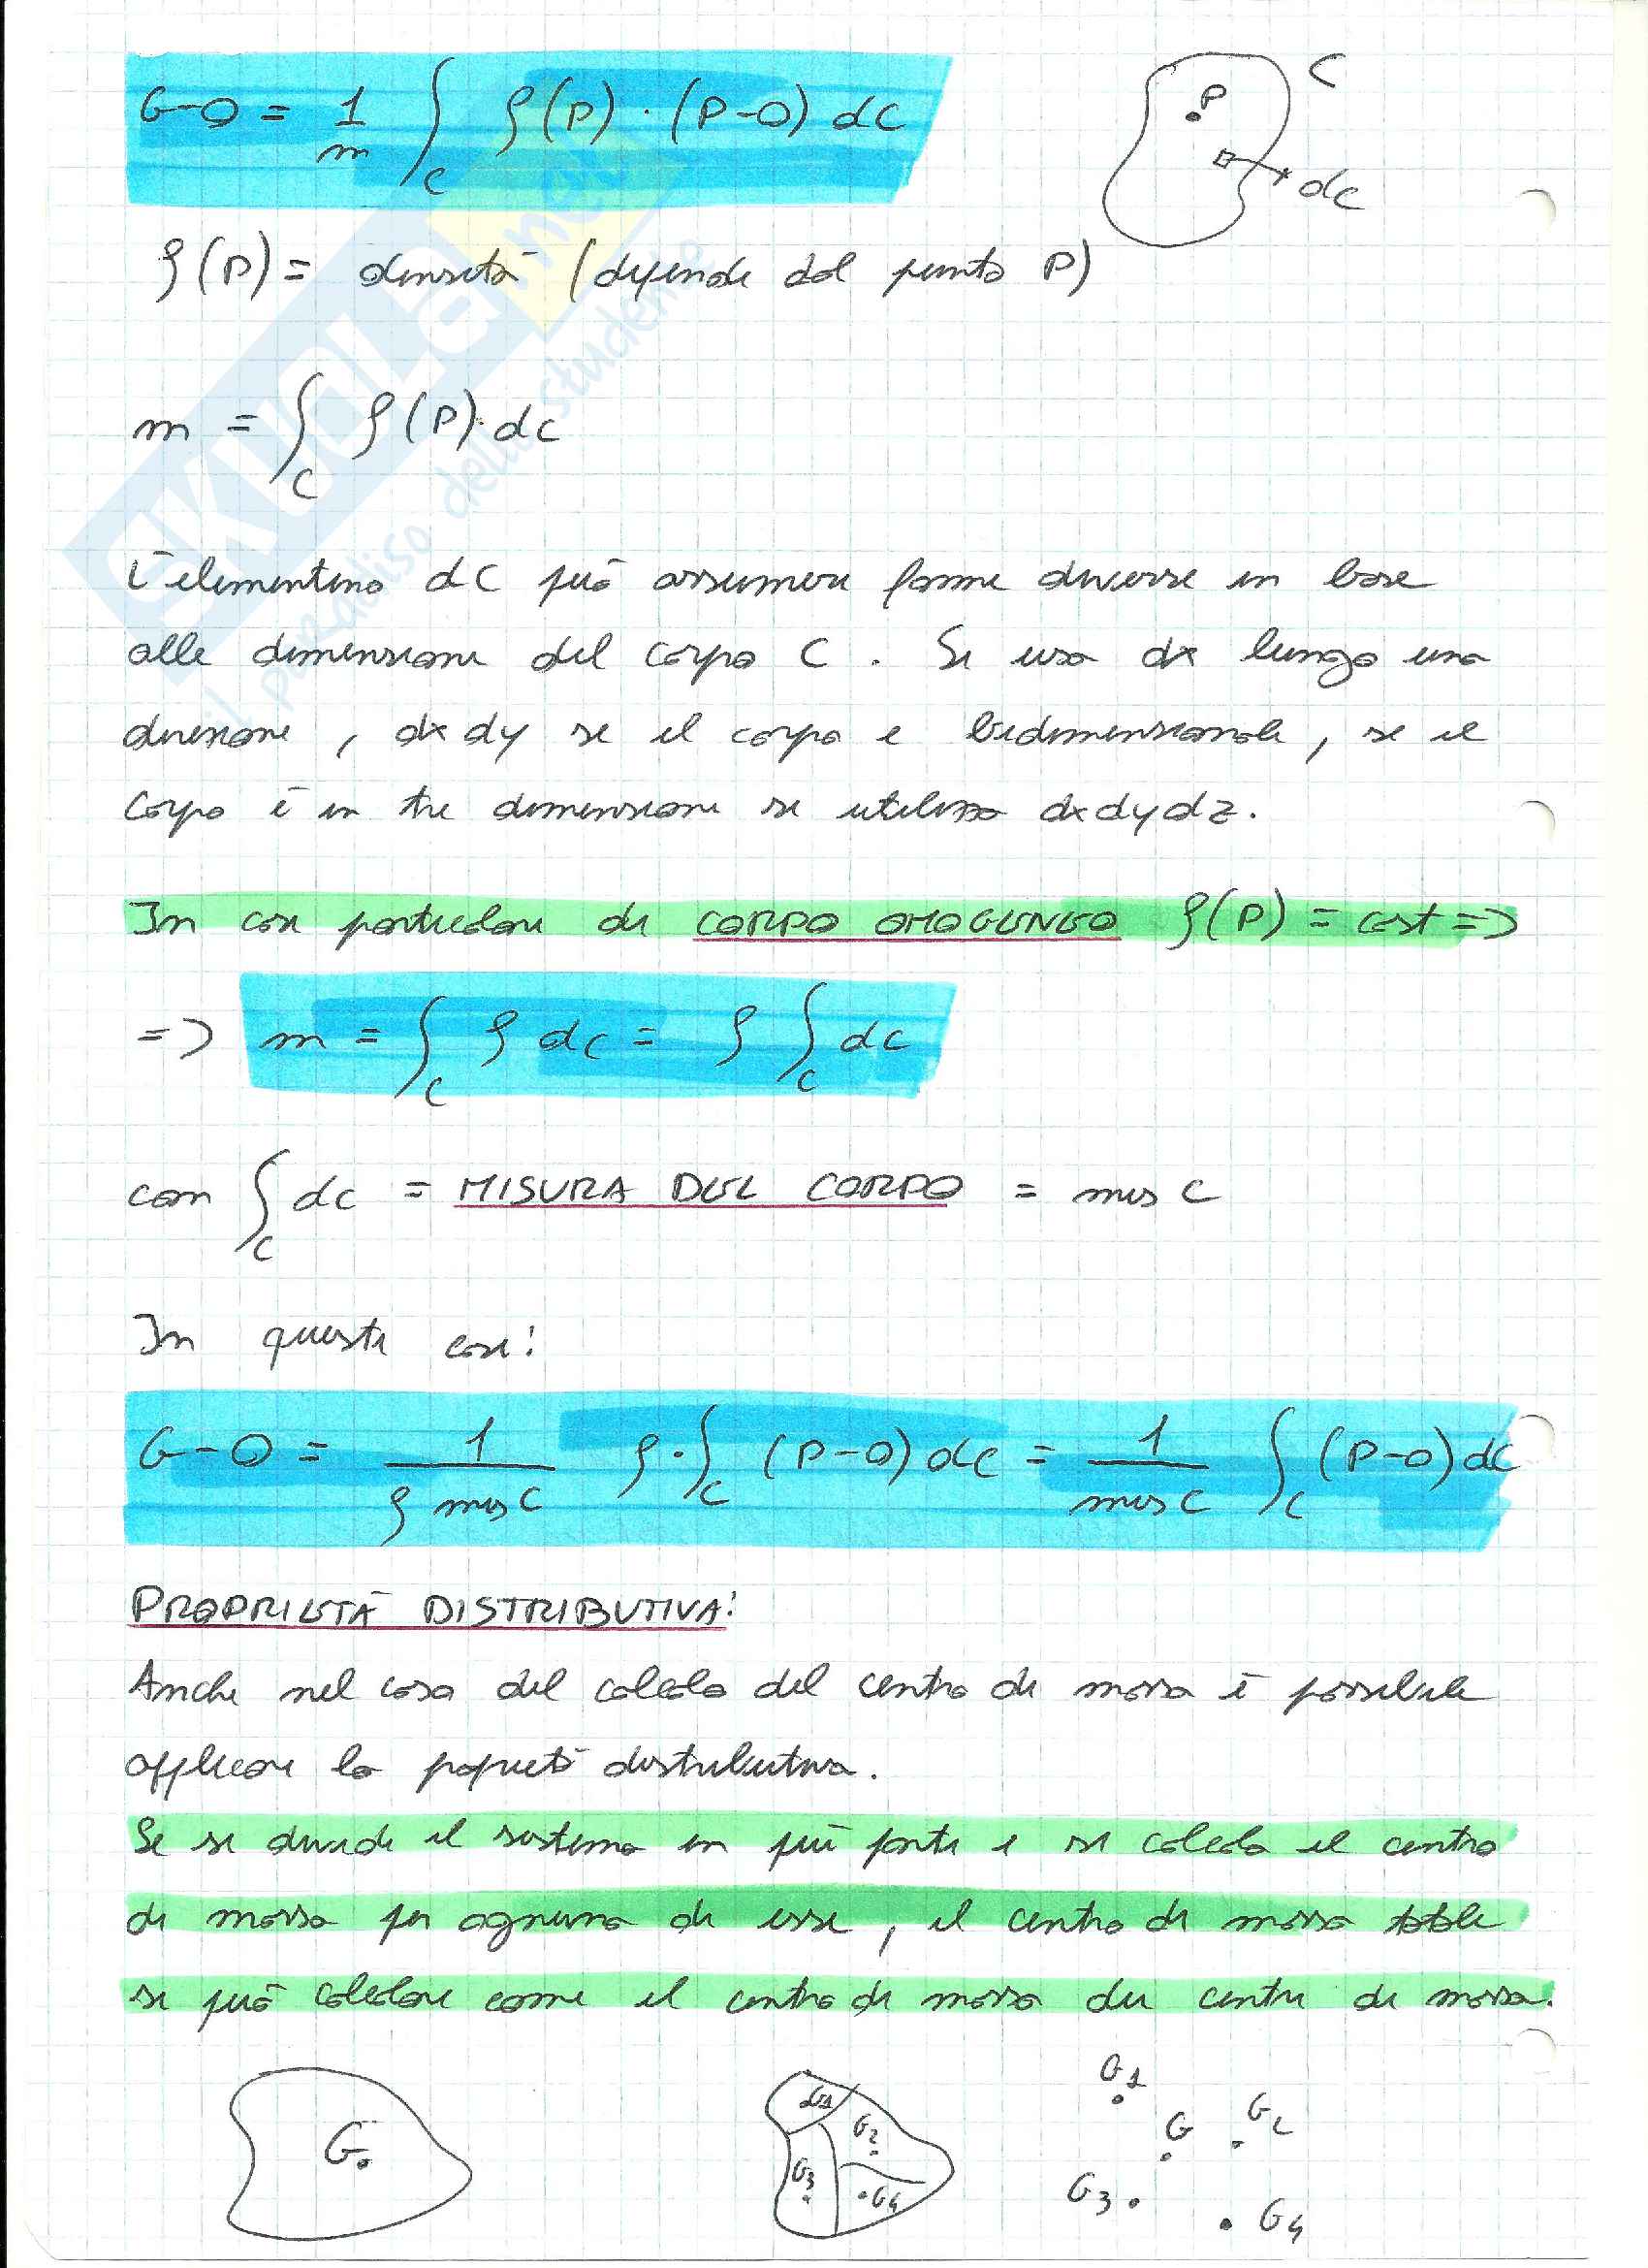 G-O = 1/m ∫_C ρ(P)·(P-O) dC
C
P
dC
ρ(P) = densità (dipende dal punto P)
m = ∫_C ρ(P)·dC
L'elementino dC può assumere forme diverse in base
alle dimensioni del corpo C. Si usa dx lungo una
direzione, dx dy se il corpo è bidimensionale, se il
corpo è in tre dimensioni si utilizza dxdydz.
In casi particolari di CORPO OMOGENEO ρ(P) = cost =>
=> m = ∫_C ρ dC = ρ ∫_C dC
con ∫_C dC = MISURA DEL CORPO = mis C
In questi casi:
G-O = 1/(ρ mis C) ρ·∫_C (P-O) dC = 1/(mis C) ∫_C (P-O) dC
PROPRIETÀ DISTRIBUTIVA:
Anche nel caso del calcolo del centro di massa è possibile
applicare la propietà distributiva.
Se si divide il sistema in più parti e si calcola il centro
di massa per ognuna di esse, il centro di massa totale
si può calcolare come il centro di massa dei centri di massa.
G
G1
G2
G3
G4
G1
G
G2
G3
G4
SKUOLA.net
il paradiso dello studente